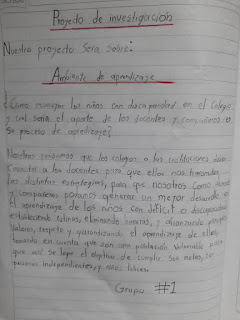 Proyecto de investigación
Nuestro proyecto sera sobre:
Ambiente de aprendizaje
¿Como manejar los niños con discapacidad en el colegio
y cual seria el aporte de los docentes y compañeros en
su proceso de aprendizaje?
Nosotros pensamos que los colegios o las instituciones deben
a los docentes para que ellos nos transmitan
las distintas estrategias, para que nosotros como
y compañeros podamos generar un mejor desarrollo en
el aprendizaje de los niños con déficit o discapacidad
estableciendo rutinas, eliminando barreras, y afianzando
Valores, respeto y garantizando el aprendizaje de ellos,
teniendo en cuenta que son una población vulnerable para
que asi se logre el objetivo de cumplir sus metas, ser
personas independientes, y mas felices.
Grupo #1